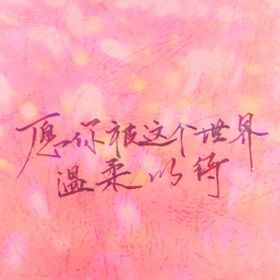 愿你被这个世界
温柔以待